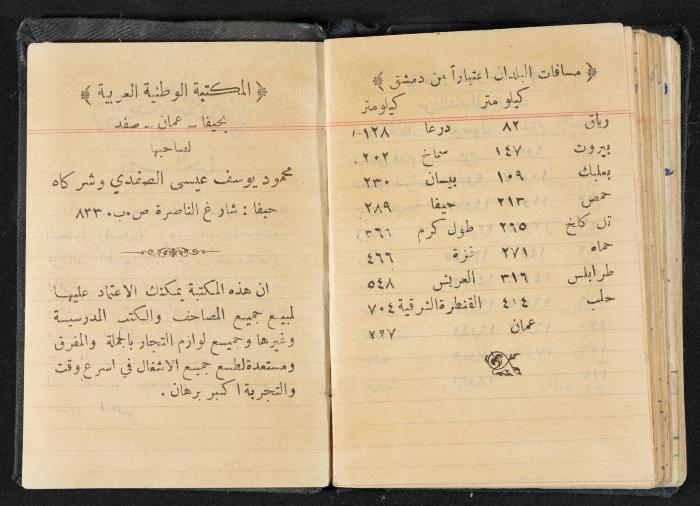 ﴿ مسافات البلدان اعتباراً من دمشق ﴾
كيلو متر كيلو متر
رياق ٨٢ درعا ١٢٨
بيروت ١٤٧ سماخ ٢٠٢
بعلبك ١٠٩ بيسان ٢٣٠
حمص ٢١٣ حيفا ٢٨٩
تل كلخ ٢٦٥ طول كرم ٣٦٦
حماه ٢٧١ غزة ٤٦٦
طرابلس ٣١٦ العريش ٥٤٨
حلب ٤١٤ القنطرة الشرقية ٧٠٤
عمان
﴿ المكتبة الوطنية العربية ﴾
بحيفا - عمان - صفد
لصاحبها
محمود يوسف عيسى الصفدي وشركاه
حيفا : شارع الناصرة ص.ب. ٨٣٣
ان هذه المكتبة يمكنك الاعتماد عليها
لمبيع جميع المصاحف والكتب المدرسية
وغيرها وجميع لوازم التجار بالجملة والمفرق
ومستعدة لطبع جميع الاشغال في اسرع وقت
والتجربة اكبر برهان .